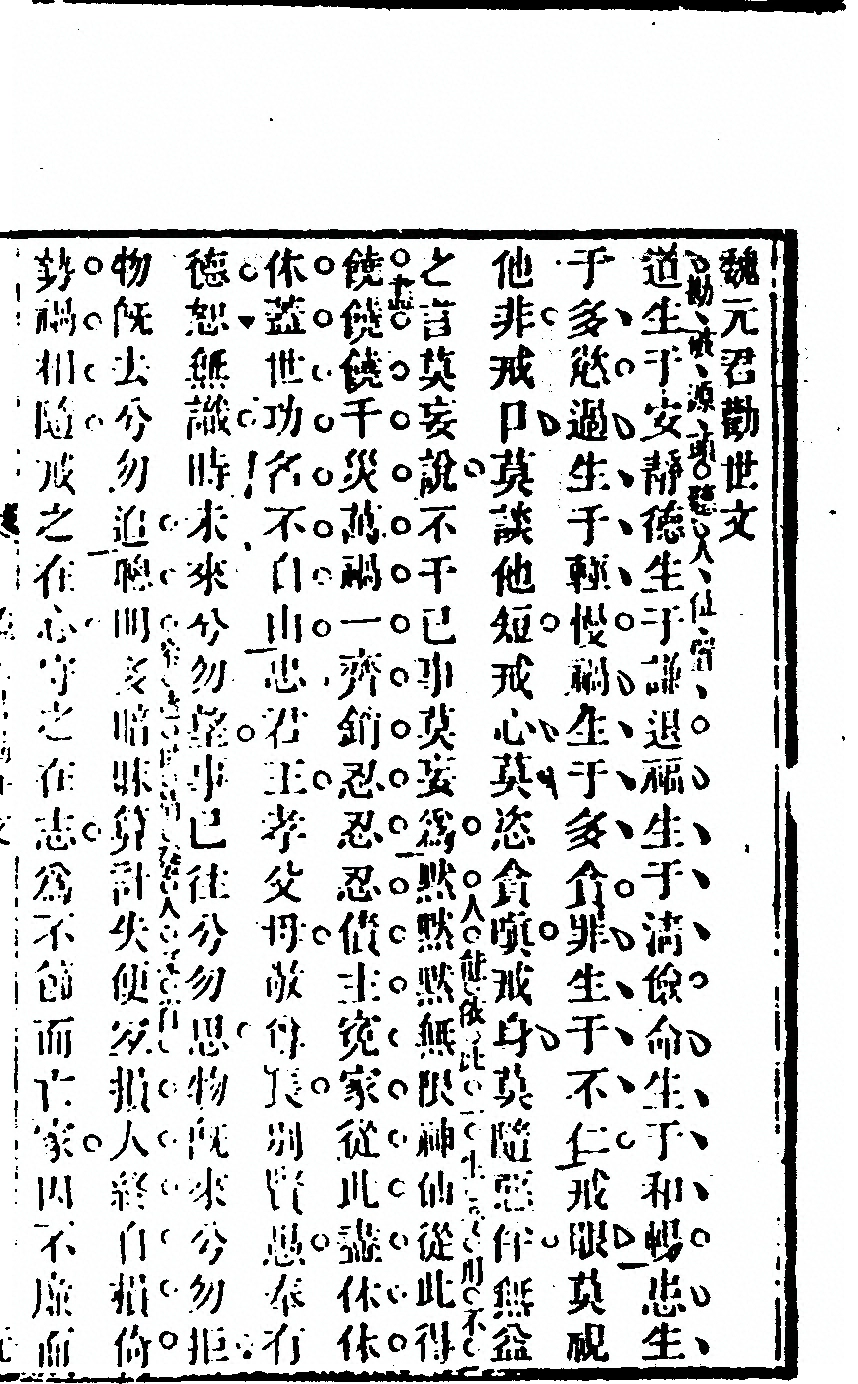 魏元君勸世文
道生于安靜德生于謙退福生于清儉命生于和暢患生
于多慾過生于輕慢禍生于多貪罪生于不仁戒眼莫視
他非戒口莫談他短戒心莫恣貪嗔戒身莫隨惡伴無益
之言莫妄說不干已事莫妄爲默默默無限神仙從此得
饒饒饒千災萬禍一齊銷忍忍忍債主寃家從此盡休休
休蓋世功名不自由忠君王孝父母敬尊長別賢愚奉有
德恕無識時未來兮勿整事已往兮勿思物旣來兮勿拒
物旣去兮勿追聰明多暗昧算計失便宐損人終自損倚
勢禍相隨戒之在心守之在志爲不節而亡家因不廉而